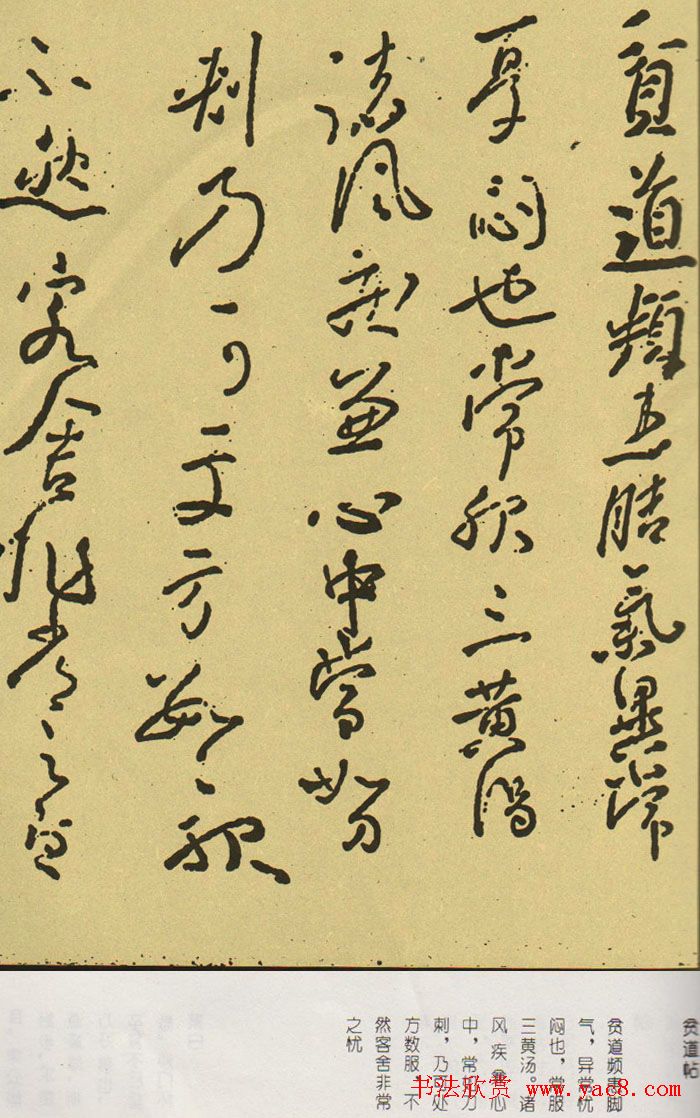 貧道頻患腳氣異常
憂悶也常服三黃湯
諸風疾兼心中常如刀
刺乃可處方數服
不然客舍非常之憂
贫道帖
贫道频患脚
气，异常忧
闷也，常服
三黄汤。诸
风疾兼心
中，常如刀
刺，乃可处
方数服。不
然客舍非常
之忧
书法欣赏 www.yac8.com